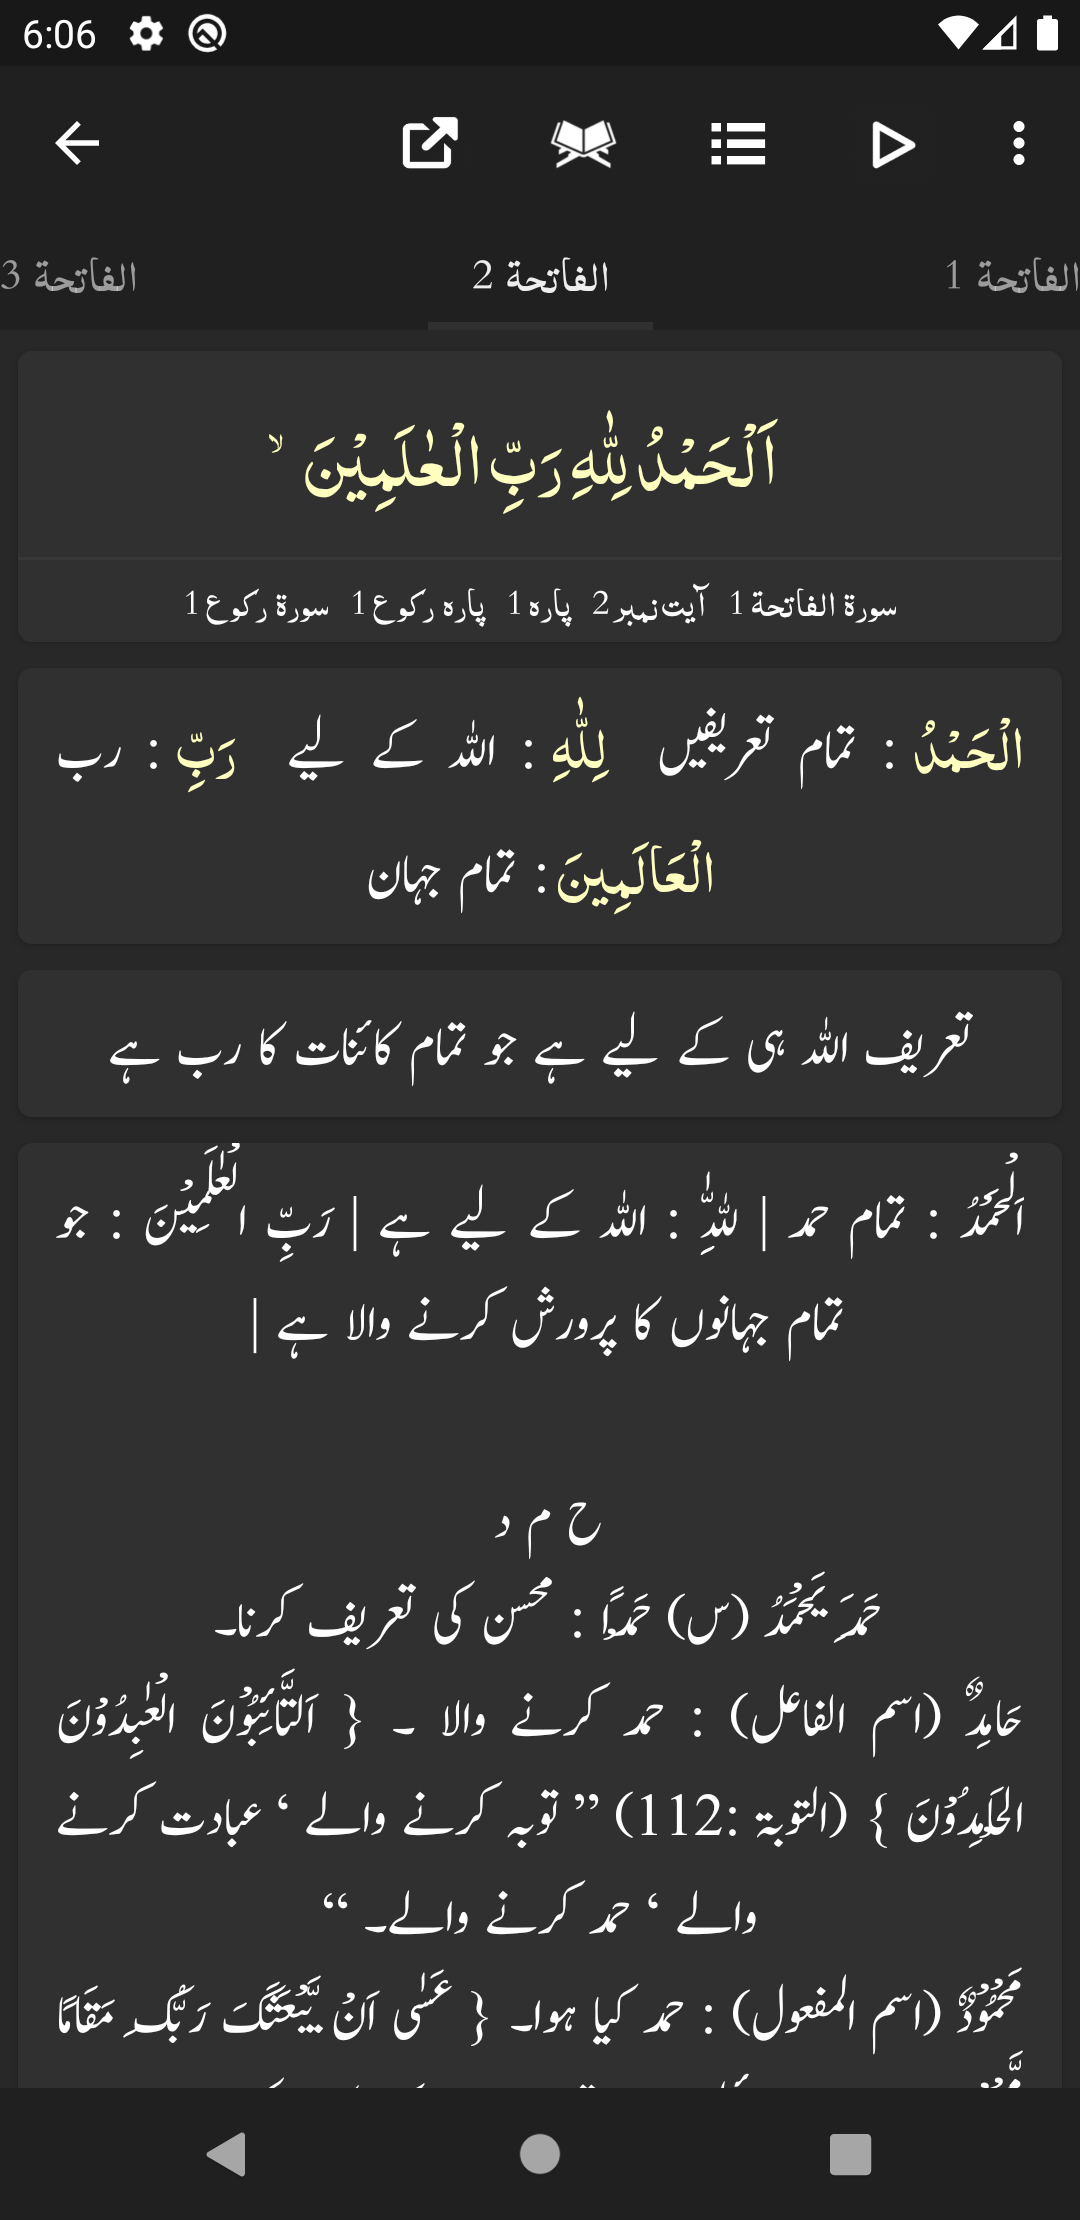 6:06
الفاتحة 1
الفاتحة 2
الفاتحة 3
اَلْحَمْدُ لِلّٰهِ رَبِّ الْعٰلَمِيْنَ ۙ
سورة الفاتحة 1 آیت نمبر 2 پارہ 1 پارہ رکوع 1 سورة رکوع 1
الْحَمْدُ : تمام تعریفیں لِلّٰهِ : اللہ کے لیے رَبِّ : رب
الْعَالَمِينَ : تمام جہان
تعریف اللہ ہی کے لیے ہے جو تمام کائنات کا رب ہے
اَلْحَمْدُ : تمام حمد | لِلّٰہِ : اللہ کے لیے ہے | رَبِّ الْعٰلَمِیْنَ : جو
تمام جہانوں کا پرورش کرنے والا ہے |
ح م د
حَمِدَ یَحْمَدُ (س) حَمْدًا : محسن کی تعریف کرنا۔
حَامِدٌ (اسم الفاعل) : حمد کرنے والا ۔ { اَلتَّآئِبُوْنَ الْعٰبِدُوْنَ
الْحٰمِدُوْنَ } (التوبۃ :112) ’’ توبہ کرنے والے ‘ عبادت کرنے
والے ‘ حمد کرنے والے۔ ‘‘
مَحْمُوْدٌ (اسم المفعول) : حمد کیا ہوا۔ { عَسٰٓی اَنْ یَّبْعَثَکَ رَبُّکَ مَقَامًا